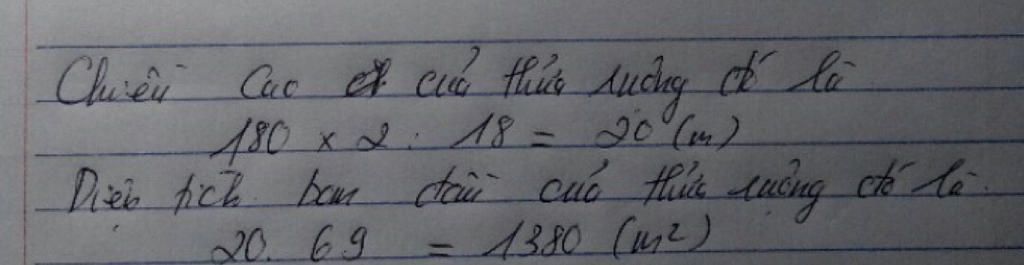 Chiều cao của thửa ruộng đó là
180 x 2 : 18 = 20 (m)
Diện tích ban đầu của thửa ruộng đó là.
20. 69 = 1380 (m²)